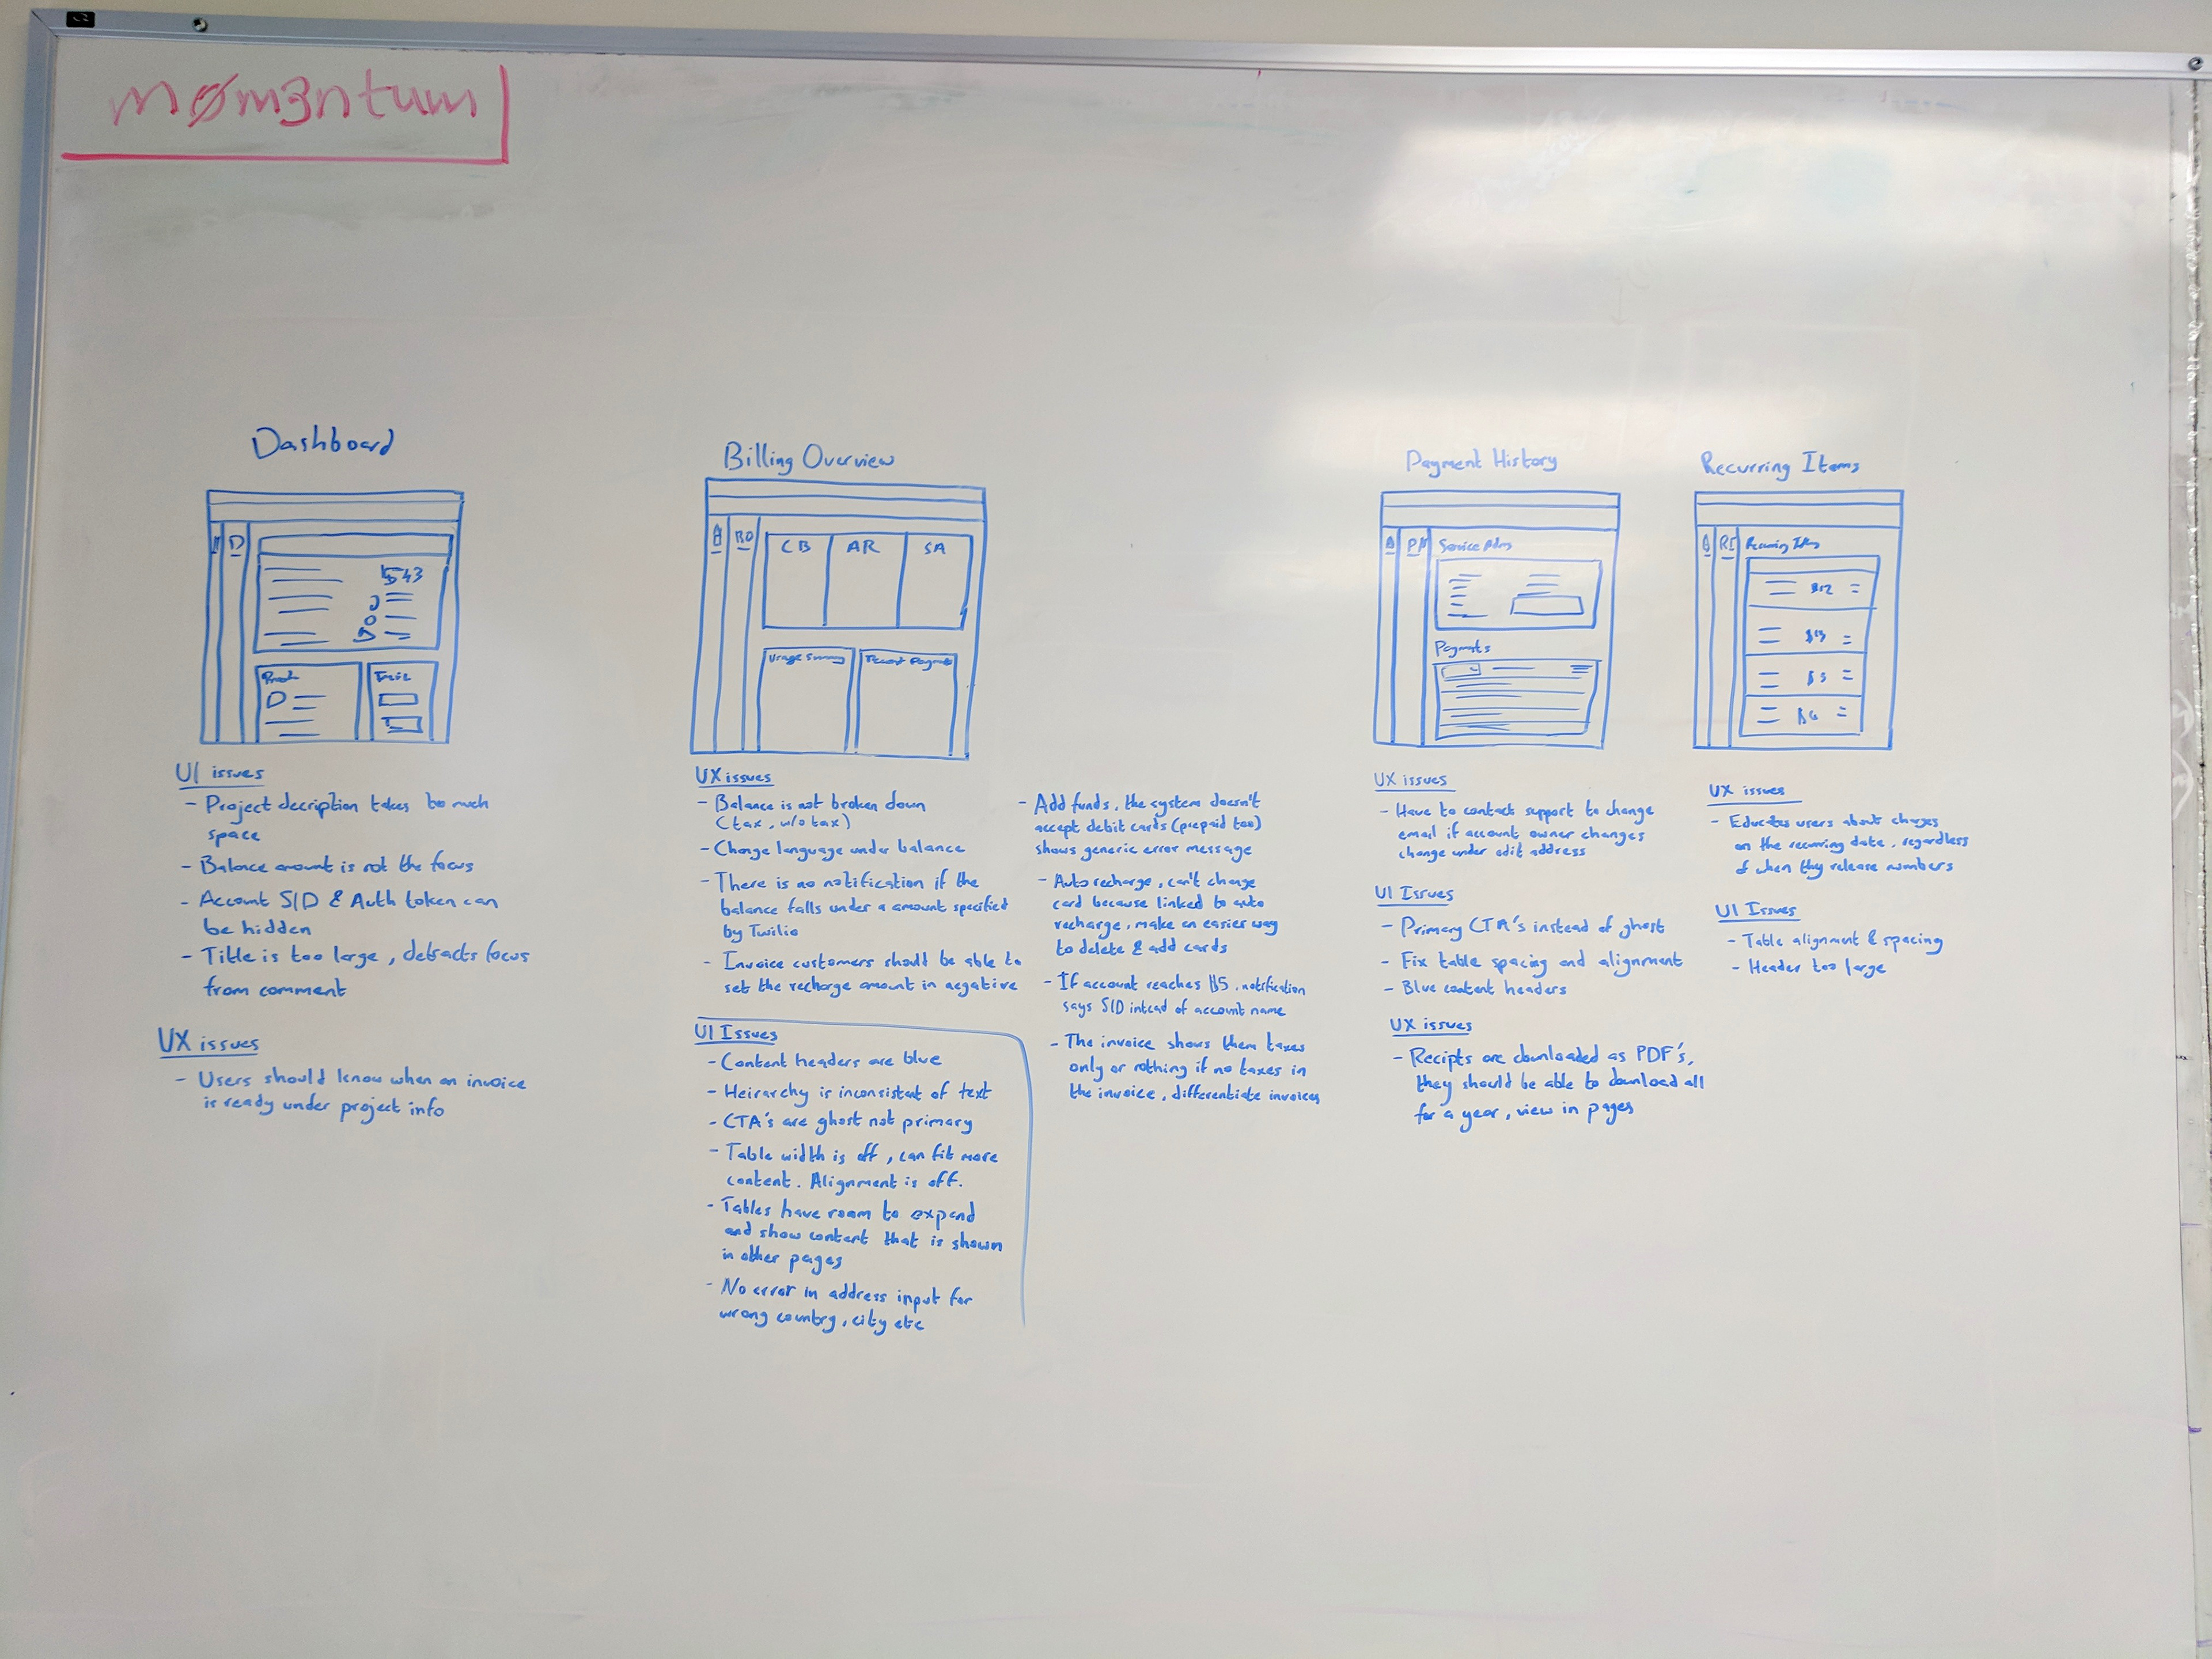 mØm3ntum
Dashboard
D
UI issues
- Project decription takes too much
space
- Balance amount is not the focus
- Account SID & Auth token can
be hidden
- Title is too large, detracts focus
from comment
UX issues
- Users should know when an invoice
is ready under project info
Billing Overview
BO
CB AR SA
UX issues
- Balance is not broken down
(tax, w/o tax)
- Change language under balance
- There is no notification if the
balance falls under a amount specified
by Twilio
- Invoice customers should be able to
set the recharge amount in negative
UI Issues
- Content headers are blue
- Heirarchy is inconsistent of text
- CTA's are ghost not primary
- Table width is off, can fit more
content. Alignment is off.
- Tables have room to expand
and show content that is shown
in other pages
- No error in address input for
wrong country, city etc
- Add funds, the system doesn't
accept debit cards (prepaid too)
shows generic error message
- Auto recharge, can't change
card because linked to auto
recharge, make an easier way
to delete & add cards
- If account reaches $5, notification
says SID intead of account name
- The invoice shows them taxes
only or nothing if no taxes in
the invoice, differentiate invoices
Payment History
Service
Payments
UX issues
- Have to contact support to change
email if account owner changes
change under edit address
UI Issues
- Primary CTA's instead of ghost
- Fix table spacing and alignment
- Blue content headers
UX issues
- Recipts are downloaded as PDF's,
they should be able to download all
for a year, view in pages
Recurring Items
RI Recurring Items
$12
UX issues
- Educates users about charges
on the recurring date, regardless
of when they release numbers
UI Issues
- Table alignment & spacing
- Header too large